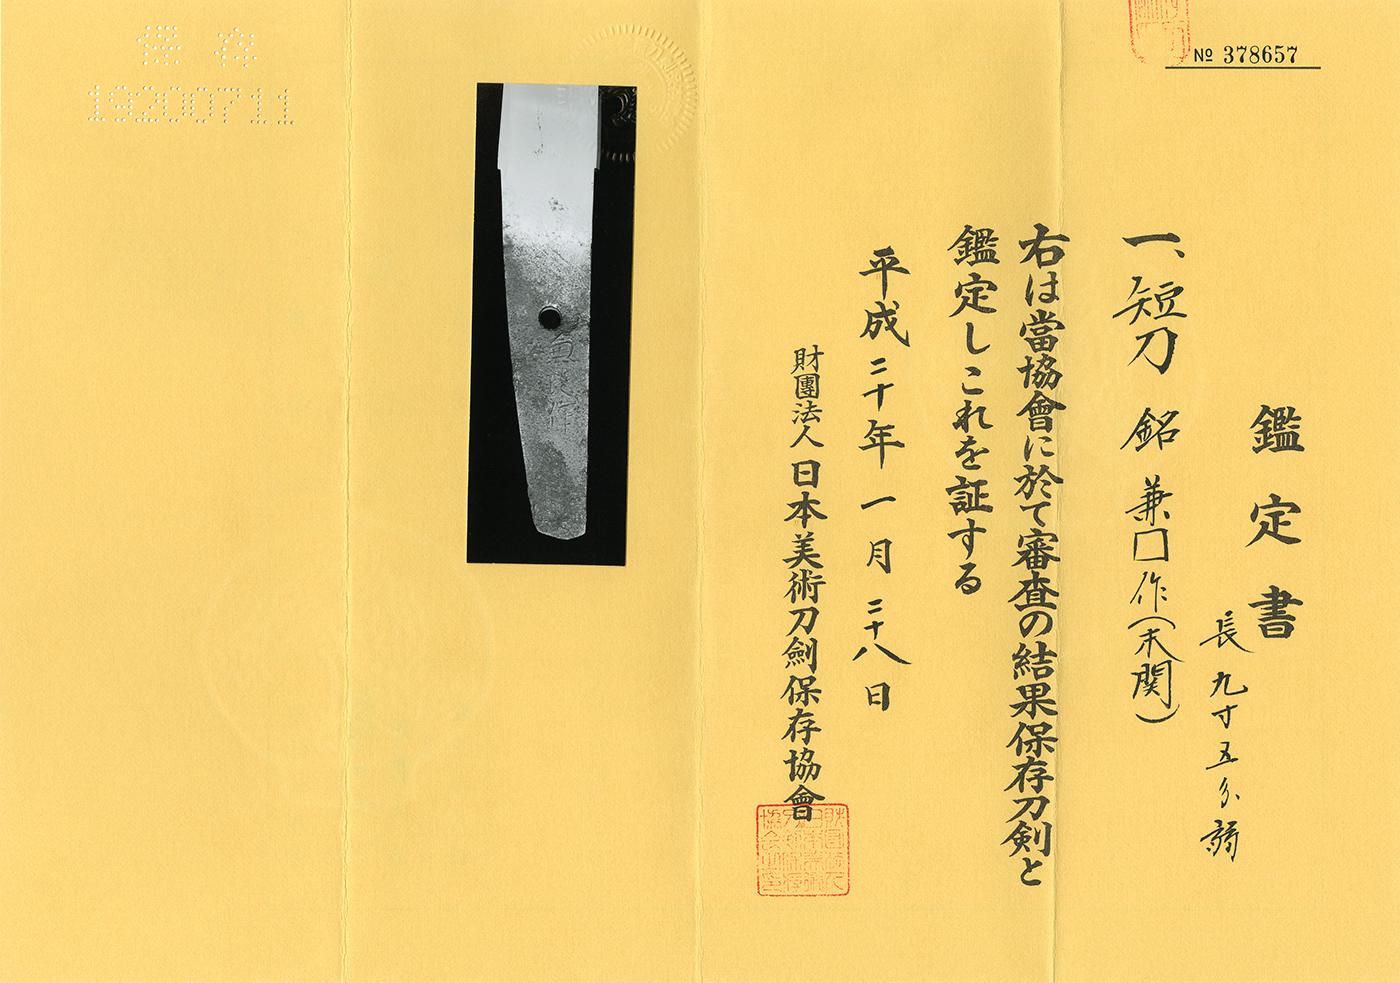 № 378657
鑑定書
長九寸五分弱
一、短刀 銘 兼□作(末関)
右は當協會に於て審査の結果保存刀剣と
鑑定しこれを証する
平成二十年一月二十八日
財團法人日本美術刀劍保存協會
保存
19200711